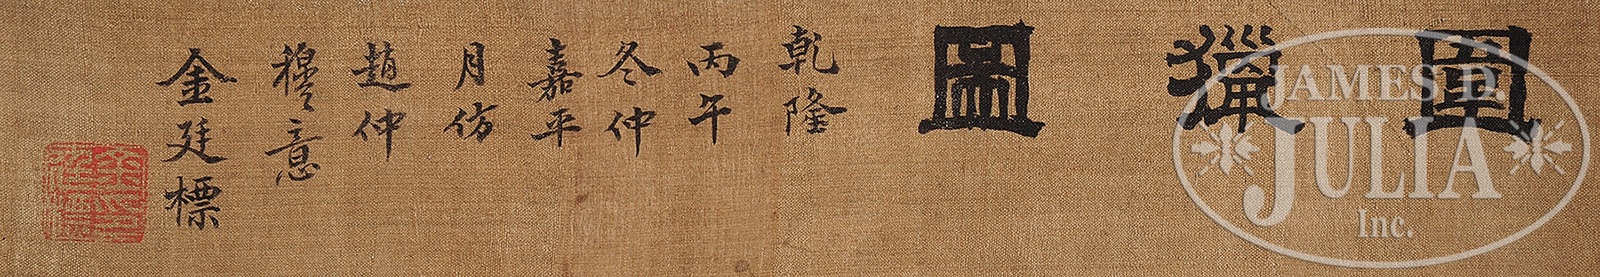 圍獵圖
乾隆
丙午
冬仲
嘉平
月仿
趙仲
穆意
金廷標
JAMES D.
JULIA
Inc.